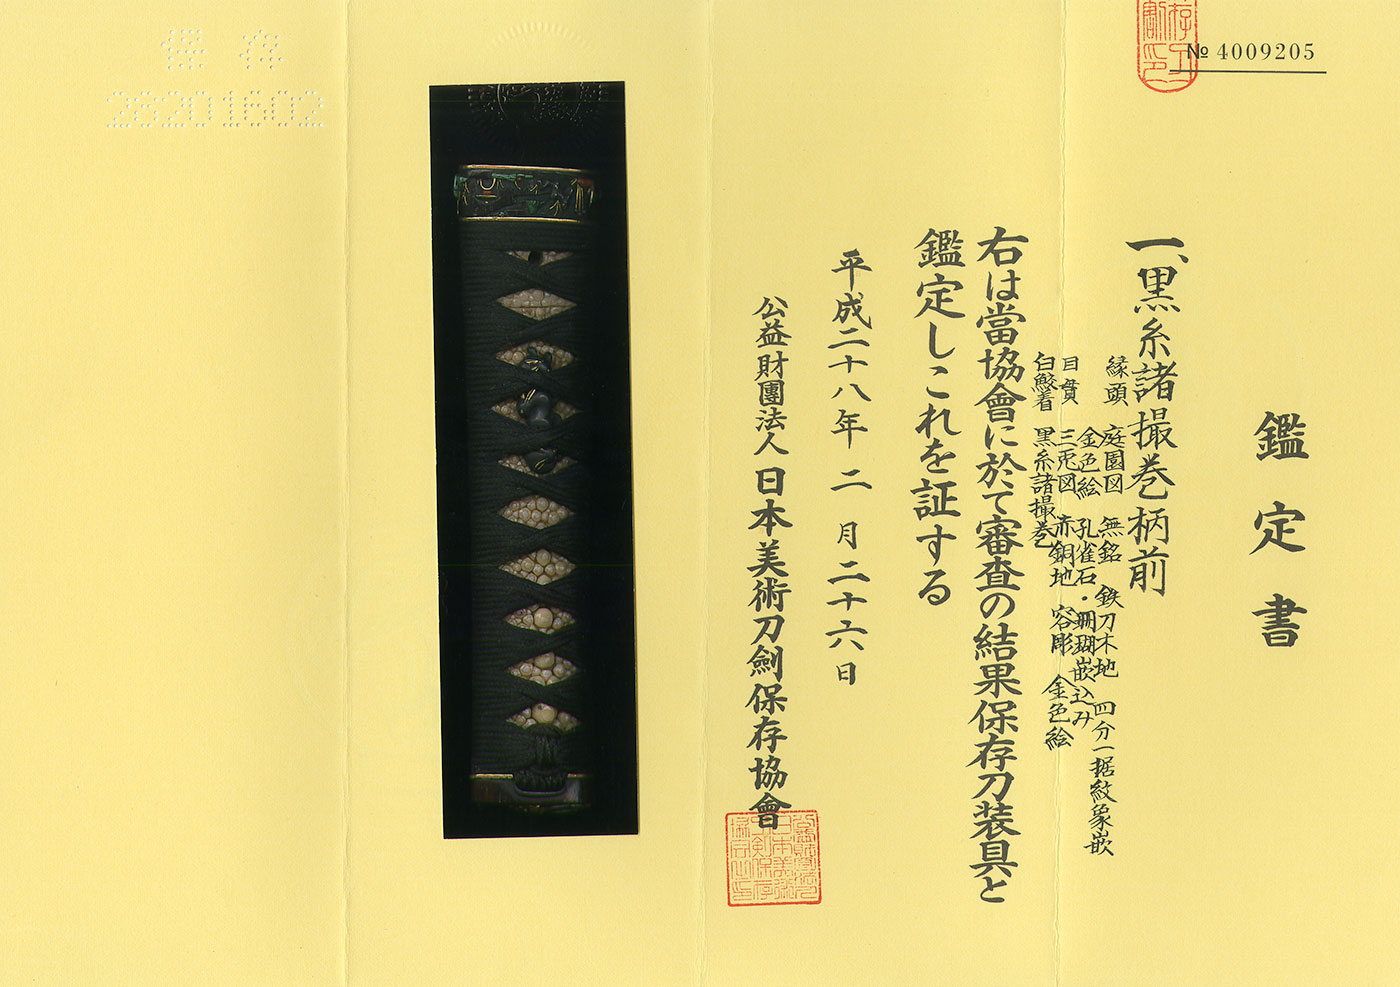 № 4009205
鑑定書
一、黒糸諸撮巻柄前
縁頭 庭園図 無銘 鉄刀木地 四分一据紋象嵌
金色絵 孔雀石・珊瑚嵌込み
目貫 三兎図 赤銅地 容彫 金色絵
白鮫着 黒糸諸撮巻
右は當協會に於て審査の結果保存刀装具と
鑑定しこれを証する
平成二十八年 二月二十六日
公益財團法人 日本美術刀劍保存協會
保存
28201602